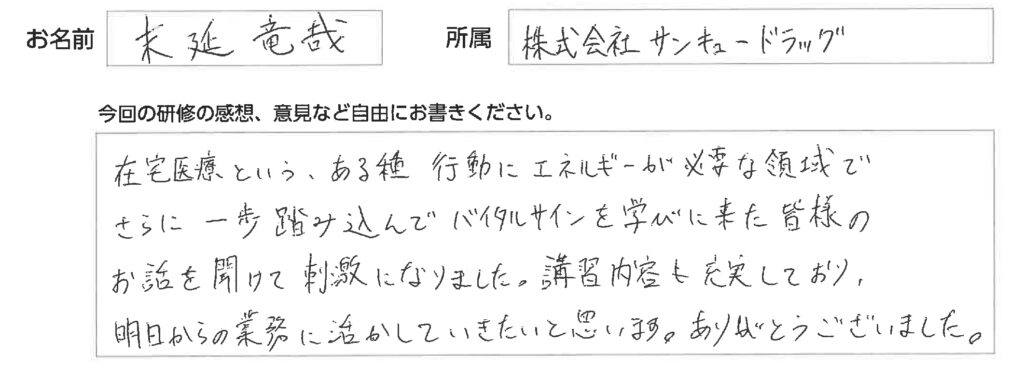 お名前 末延 竜哉 所属 株式会社 サンキュードラッグ
今回の研修の感想、意見など自由にお書きください。
在宅医療という、ある種 行動にエネルギーが必要な領域で
さらに 一歩踏み込んで バイタルサインを学びに来た皆様の
お話を聞けて刺激になりました。講習内容も充実しており、
明日からの業務に活かしていきたいと思います。ありがとうございました。